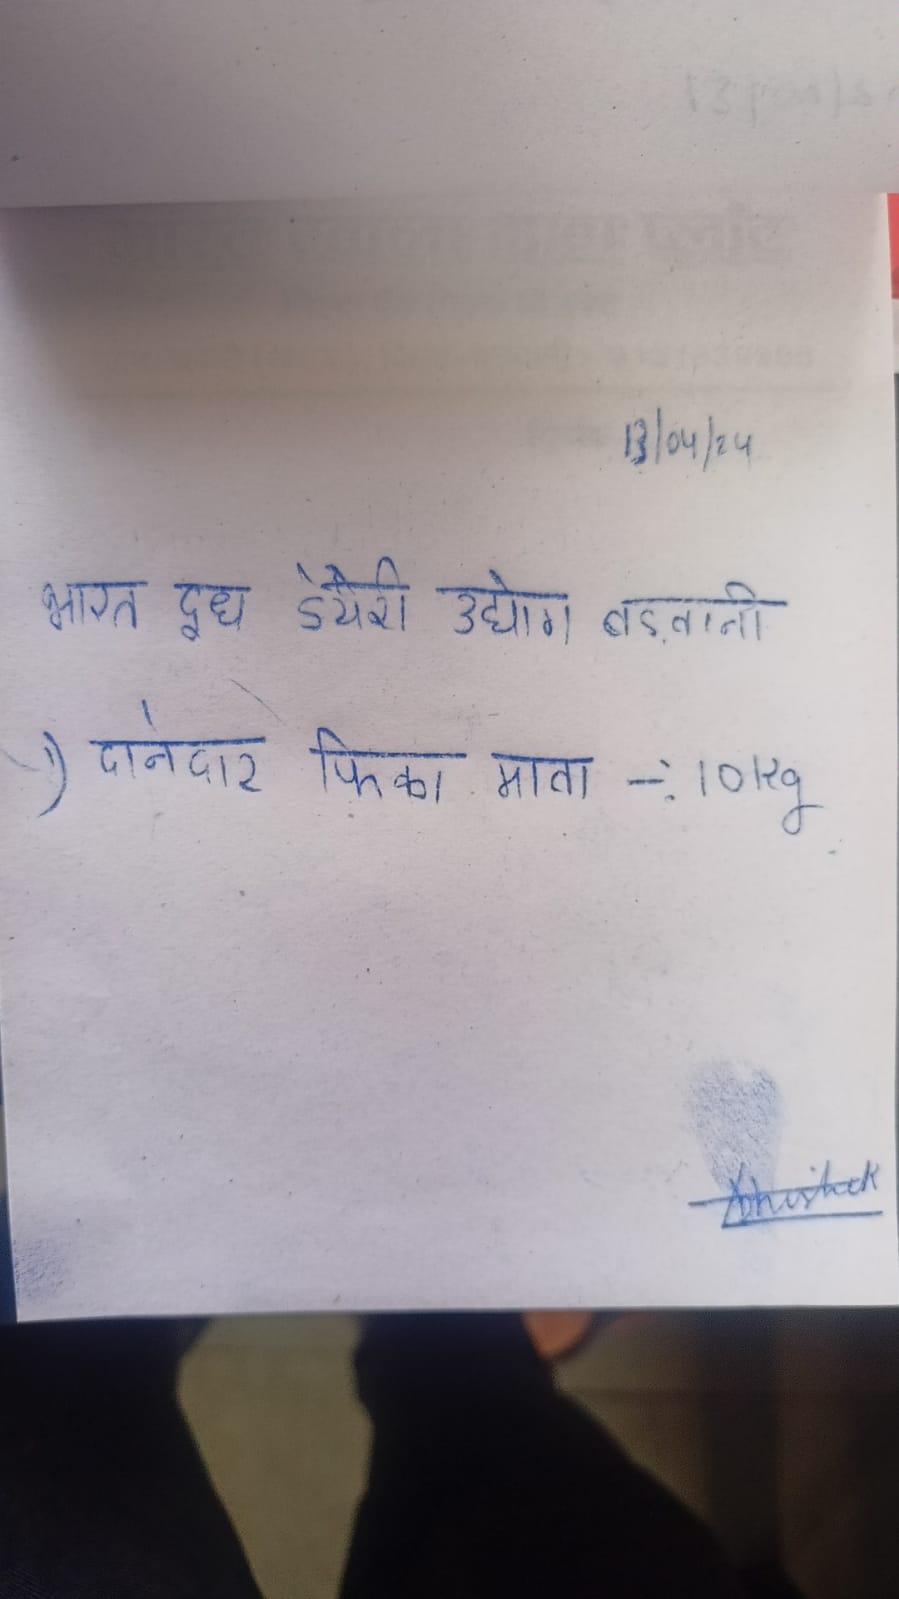 13/04/24
भारत दूध डेयैरी उद्योग बड़वानी
1) दानेदार फिका मावा -: 10 Kg
Abhishek